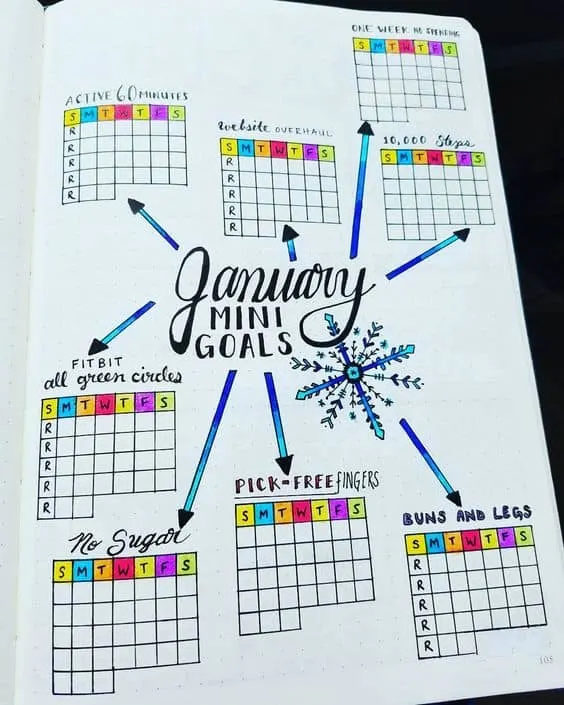 ONE WEEK NO SPENDING
S M T W T F S
ACTIVE 60 MINUTES
S M T W T F S
R
R
R
R
R
website OVERHAUL
S M T W T F S
R
R
R
R
R
10,000 Steps
S M T W T F S
January
MINI
GOALS
FITBIT
all green circles
S M T W T F S
R
R
R
R
R
PICK-FREE FINGERS
S M T W T F S
No Sugar
S M T W T F S
BUNS AND LEGS
S M T W T F S
R
R
R
R
R
105